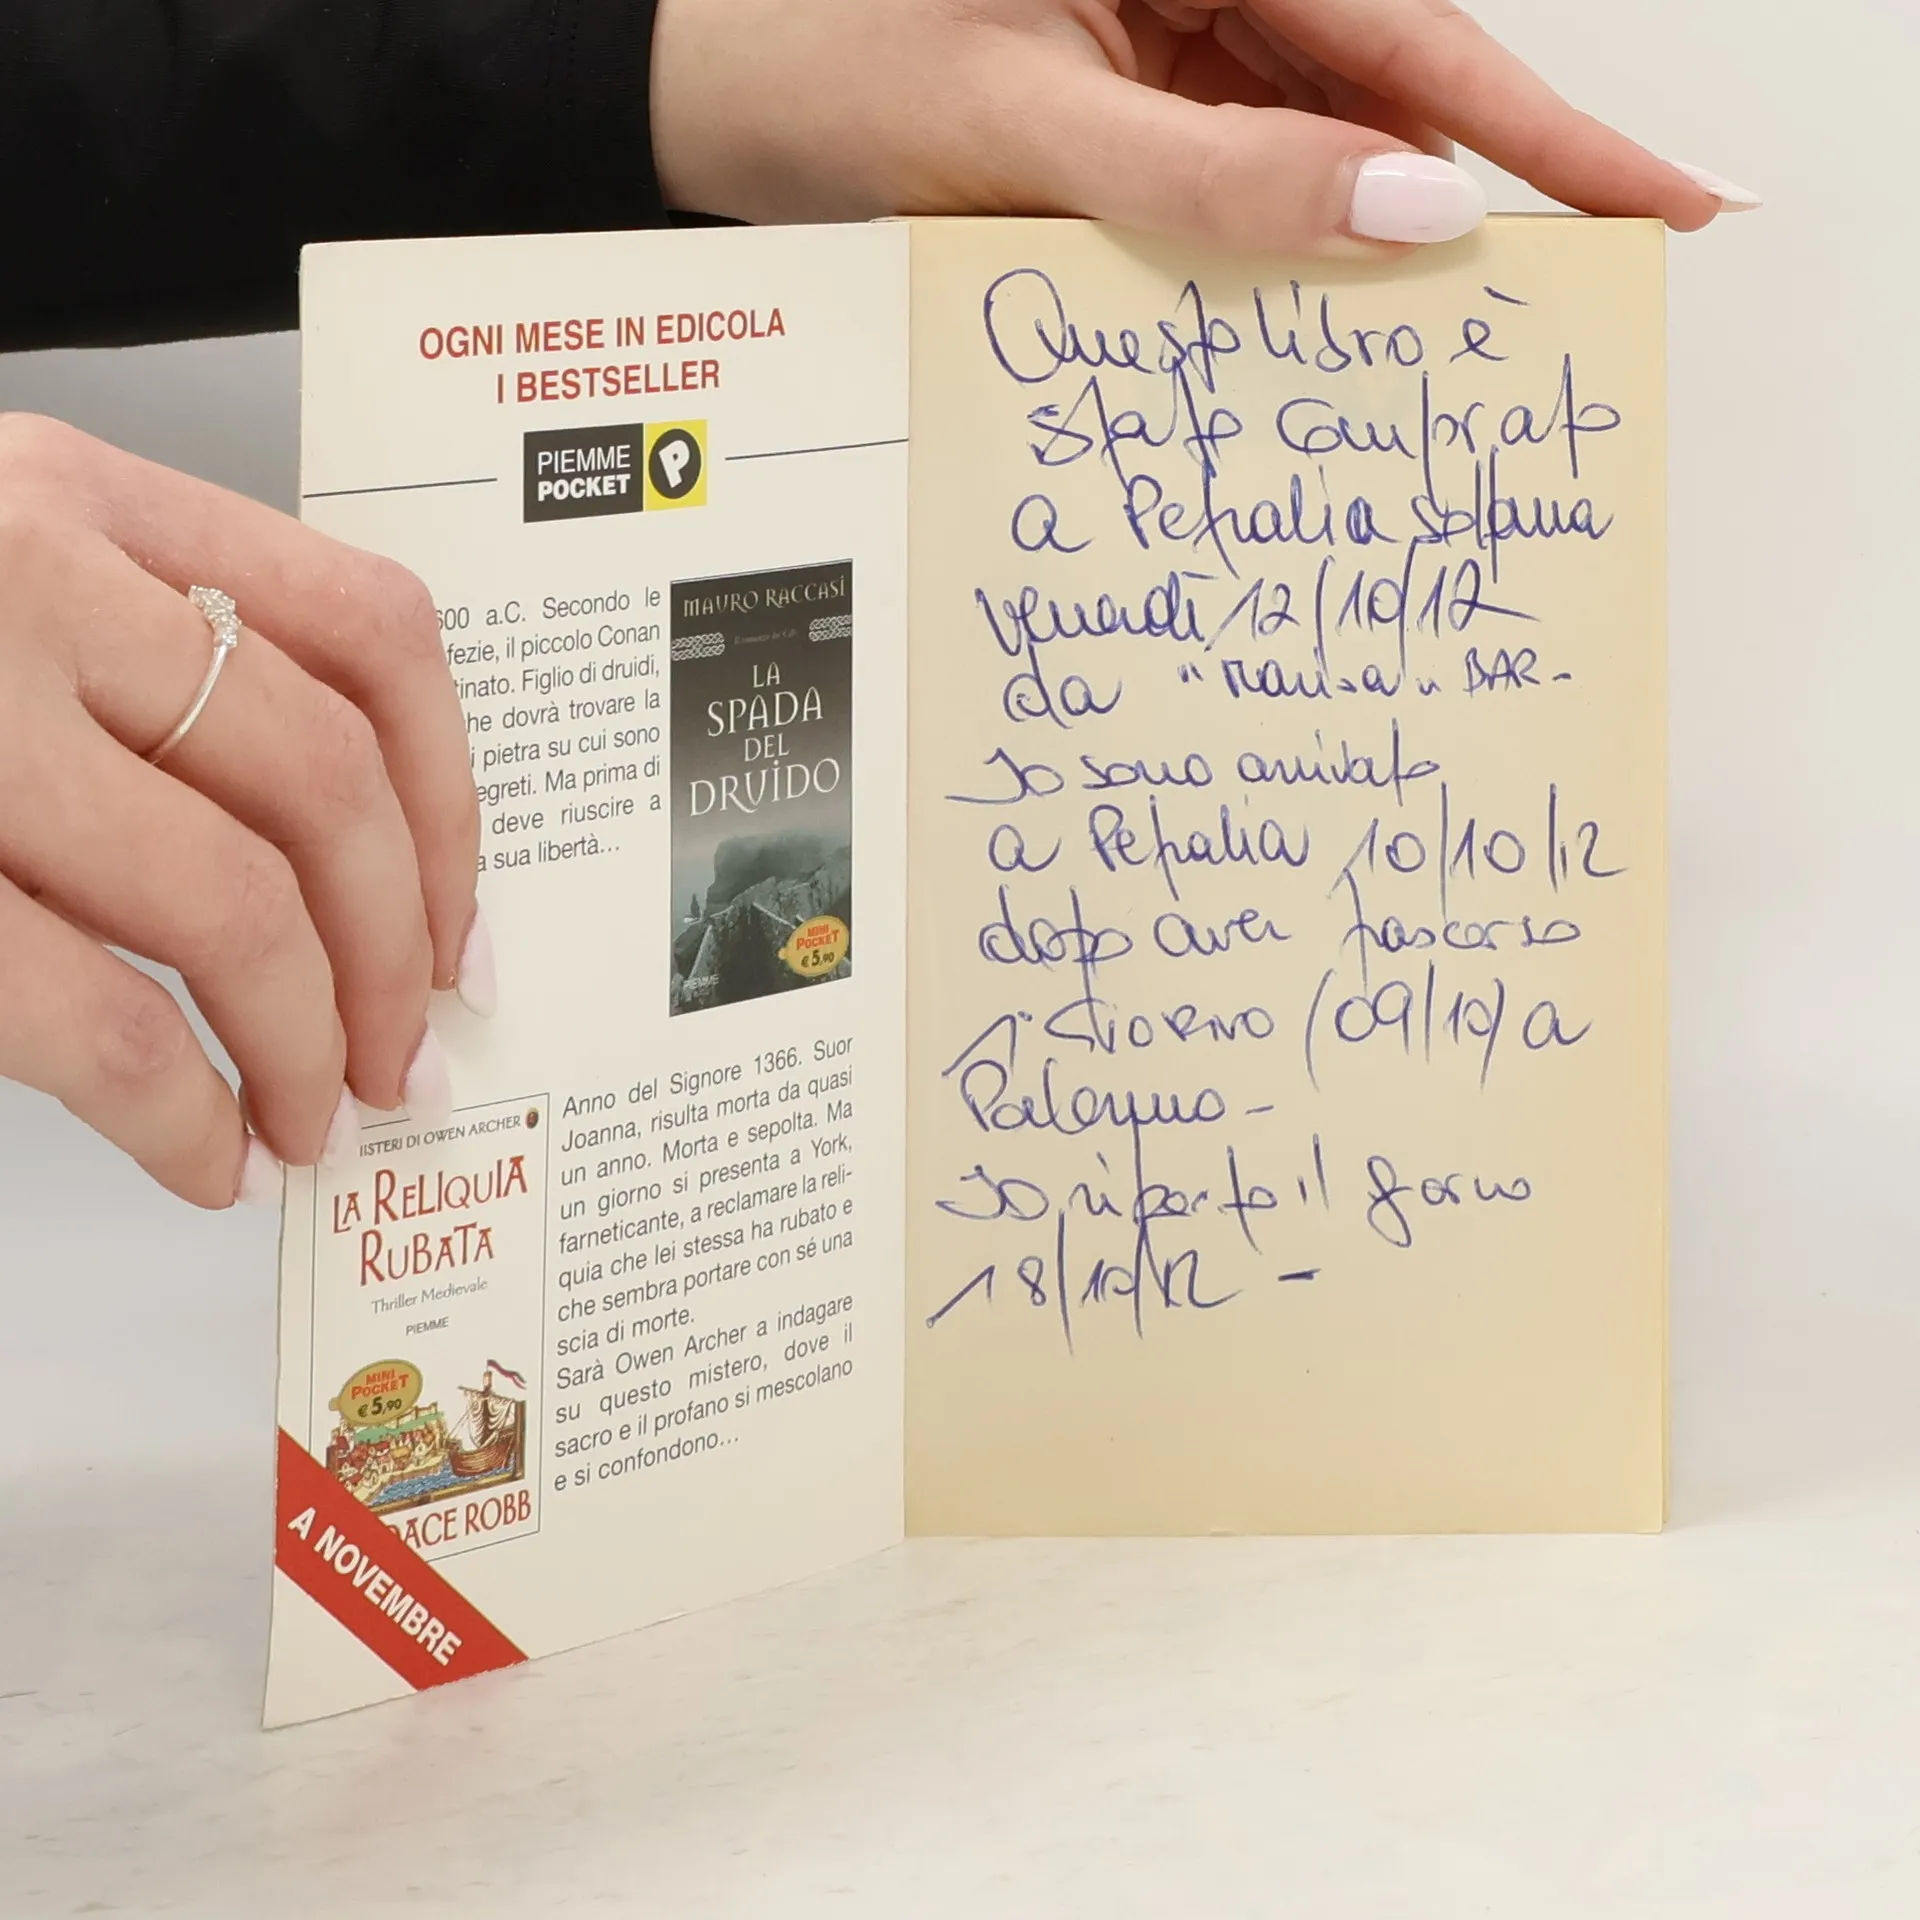 OGNI MESE IN EDICOLA
I BESTSELLER
PIEMME
POCKET
P
600 a.C. Secondo le
fezie, il piccolo Conan
tinato. Figlio di druidi,
he dovrà trovare la
i pietra su cui sono
egreti. Ma prima di
deve riuscire a
a sua libertà...
MAURO RACCASI
LA
SPADA
DEL
DRUIDO
MINI
POCKET
€ 5,90
PIEMME
ISTERI DI OWEN ARCHER
LA RELIQUIA
RUBATA
Thriller Medievale
PIEMME
MINI
POCKET
€ 5,90
DACE ROBB
A NOVEMBRE
Anno del Signore 1366. Suor
Joanna, risulta morta da quasi
un anno. Morta e sepolta. Ma
un giorno si presenta a York,
farneticante, a reclamare la reli-
quia che lei stessa ha rubato e
che sembra portare con sé una
scia di morte.
Sarà Owen Archer a indagare
su questo mistero, dove il
sacro e il profano si mescolano
e si confondono...
Questo libro è
stato comprato
a Petralia sottana
venerdì 12/10/12
da " " BAR -
Io sono arrivato
a Petralia 10/10/12
dopo aver trascorso
1 GIORNO (09/10) a
Palermo -
Io riparto il giorno
18/10/12 -